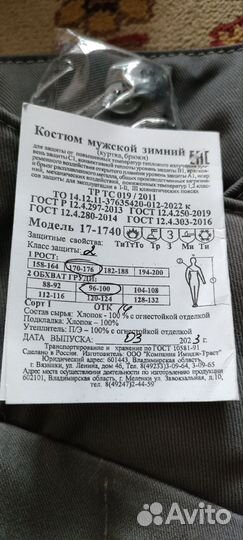 Костюм мужской зимний
(куртка, брюки)
для защиты от повышенных температур теплового излучения
ТР ТС 019 / 2011
ТО 14.12.11-37635420-012-2022 к
ГОСТ Р 12.4.297-2013 ГОСТ 12.4.250-2019
ГОСТ 12.4.280-2014 ГОСТ 12.4.303-2016
Модель 17-1740
Защитные свойства: Ти Тт То Тр З Ми
Класс защиты: 2
1 РОСТ:
158-164 170-176 182-188 194-200
2 ОБХВАТ ГРУДИ:
88-92 96-100 104-108
112-116 120-124 128-132
Сорт 1 ОТК
Состав сырья: Хлопок - 100 % с огнестойкой отделкой
Подкладка: Хлопок - 100%
Утеплитель: П/Э - 100% с огнестойкой отделкой
ДАТА ВЫПУСКА: 03 2023 г.
Транспортирование и хранение по ГОСТ 10581-91
Сделано в России. Изготовитель: ООО "Компания Имидж-Траст"
Юридический адрес: 601443, Владимирская область,
г. Вязники, ул. Ленина, дом 46, Тел. 8(49233)3-09-64, 3-09-65
Адрес места осуществления деятельности по изготовлению продукции
602101, Владимирская область, г. Меленки ул. Заводская, д.10,
тел. 8(49247)2-44-59
Avito